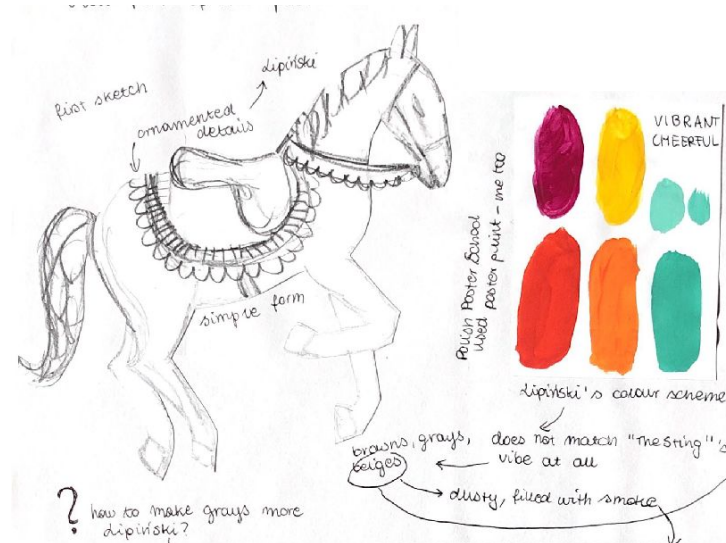 first sketch
ornamented
details
Lipiński
simple form
VIBRANT
CHEERFUL
Polish Poster School
used poster paint - me too
Lipiński's colour scheme
does not match "The Sting"'s
vibe at all
browns, grays,
beiges
dusty, filled with smoke
? how to make grays more
Lipiński?